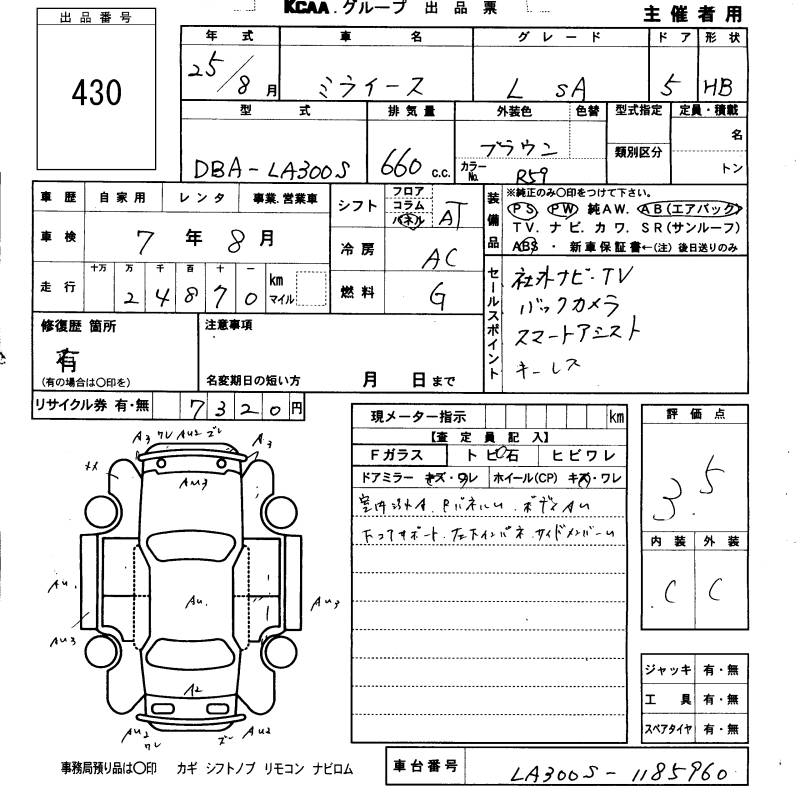 KCAA. グループ 出品票
主催者用
出品番号
430
年式 車名 グレード ドア 形状
25/8月 ミライース L SA 5 HB
型式 排気量 外装色 色替 型式指定 定員・積載
DBA-LA300S 660 c.c. ブラウン 類別区分 名
カラーNo. R59 トン
車歴 自家用 レンタ 事業.営業車
車検 7年8月
走行 十万 万 千 百 十 一 km マイル
24870
シフト フロア コラム パネル AT
冷房 AC
燃料 G
装備品 ※純正のみ〇印をつけて下さい。
PS PW 純AW. AB(エアバック)
TV. ナビ. カワ. SR(サンルーフ)
ABS ・ 新車保証書←(注)後日送りのみ
セールスポイント
社外ナビ・TV
バックカメラ
スマートアシスト
キーレス
修復歴 箇所
有
(有の場合は〇印を)
注意事項
名変期日の短い方 月 日まで
リサイクル券 有・無 7320円
現メーター指示 km
【査定員記入】
Fガラス トビ石 ヒビワレ
ドアミラー キズ・ワレ ホイール(CP) キズ・ワレ
評価点
3.5
内装 外装
C C
A3 ワレ AU2 ズレ A3
AU3
AU. AU. AU3
AU3
A2
AU2 ワレ ズレ AU2
ジャッキ 有・無
工具 有・無
スペアタイヤ 有・無
事務局預り品は〇印 カギ シフトノブ リモコン ナビロム
車台番号 LA300S-1185960